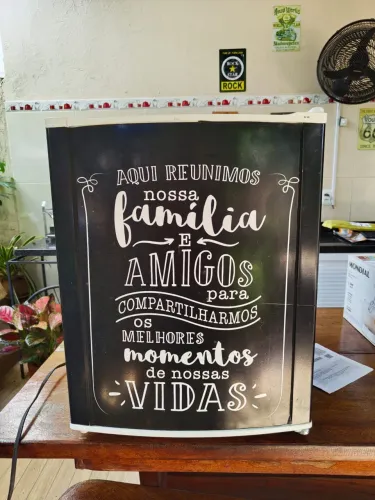 ROCK
STAR
ROCK
AQUI REUNIMOS
nossa
família
E
AMIGOS
para
COMPARTILHARMOS
OS
MELHORES
momentos
de nossas
VIDAS
MONDIAL